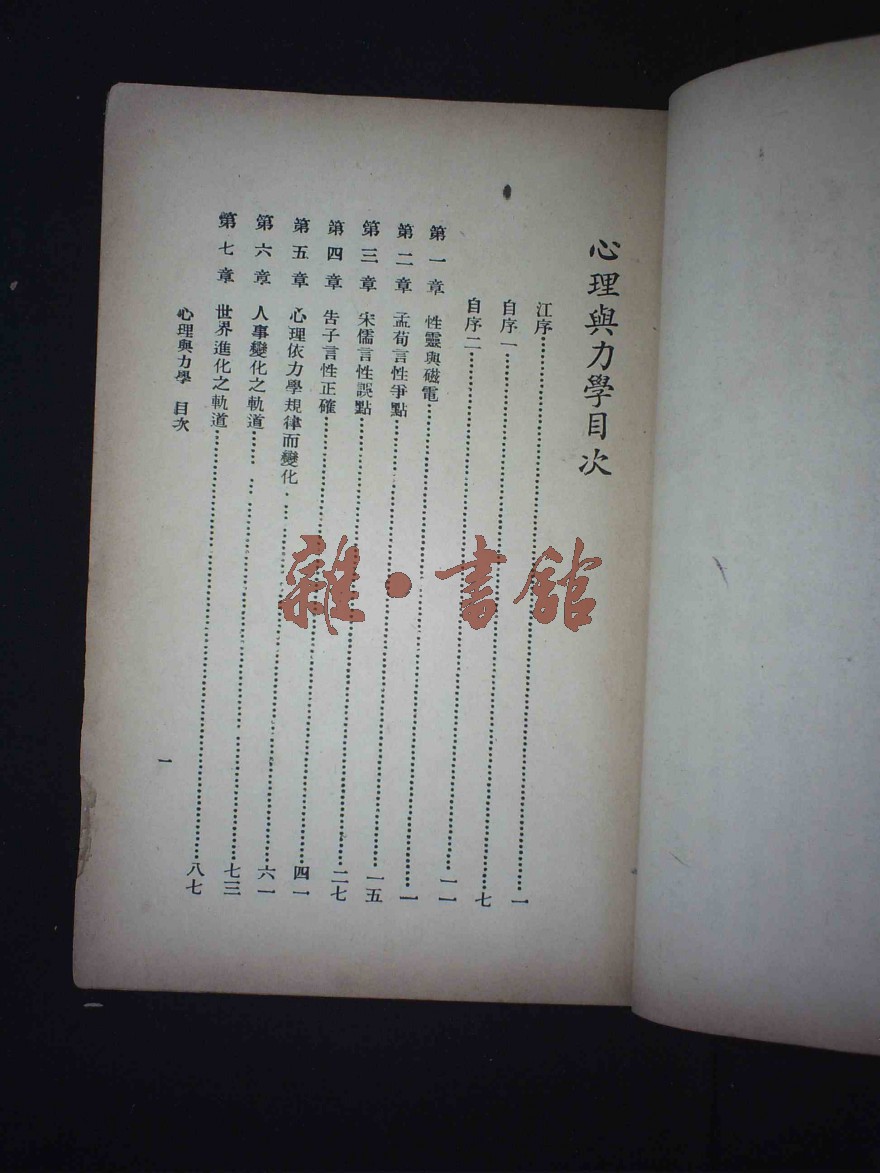 心理與力學目次
江序…………一
自序一…………七
自序二…………一一
第一章 性靈與磁電…………一
第二章 孟荀言性爭點…………一五
第三章 宋儒言性誤點…………二七
第四章 告子言性正確…………四一
第五章 心理依力學規律而變化…………六一
第六章 人事變化之軌道…………七三
第七章 世界進化之軌道…………八七
心理與力學 目次
一
雜·書館